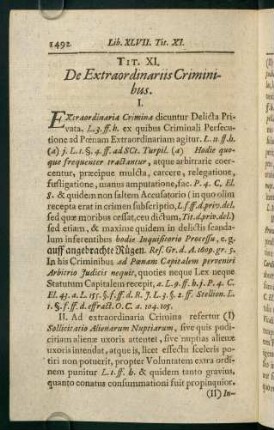 1492 Lib. XLVII. Tit. XI.
TIT. XI.
De Extraordinariis Crimini-
bus.
I.
EXtraordinaria Crimina dicuntur Delicta Pri-
vata. L. 3. ff. h. ex quibus Criminali Persecu-
tione ad Pœnam Extraordinariam agitur. L. u. ff. h.
(a) j. L. 1. §. 4. ff. ad SCt. Turpil. (a) Hodie quo-
que frequenter tractantur, atque arbitrarie coër-
centur, præcipue mulcta, carcere, relegatione,
fustigatione, manus amputatione, fac. P. 4. C. El.
8. & quidem non saltem Accusatorio (in quo olim
recepta erat in crimen subscriptio, L. f. ff. d. priv. del.
sed quæ moribus cessat, ceu dictum, Tit. d. priv. del.)
sed etiam, & maxime quidem in delictis scanda-
lum inferentibus hodie Inquisitorio Processu, e. g.
auff angebrachte Rügen. Ref. Gr. d. A. 1609. gr. 5.
In his Criminibus ad Pœnam Capitalem perveniri
Arbitrio Judicis nequit, quoties neque Lex neque
Statutum Capitalem recepit, a. L. 9. ff. h. j. P. 4. C.
El. 45. a. L. 155. §. f. ff. d. R. J. L. 3. §. 2. ff. Stellion. L.
1. §. f. ff. d. effract. O. C. a. 104. 105.
II. Ad extraordinaria Crimina refertur (I)
Sollicitatio Alienarum Nuptiarum, sive quis pudi-
citiam alienæ uxoris attentet, sive nuptias alienæ
uxoris intendat, atque is, licet effectu sceleris po-
tiri non potuerit, propter Voluntatem extra ordi-
nem punitur L. 1. ff. h. & quidem tanto gravius,
quanto conatus consummationi fuit propinquior.
(II) In-